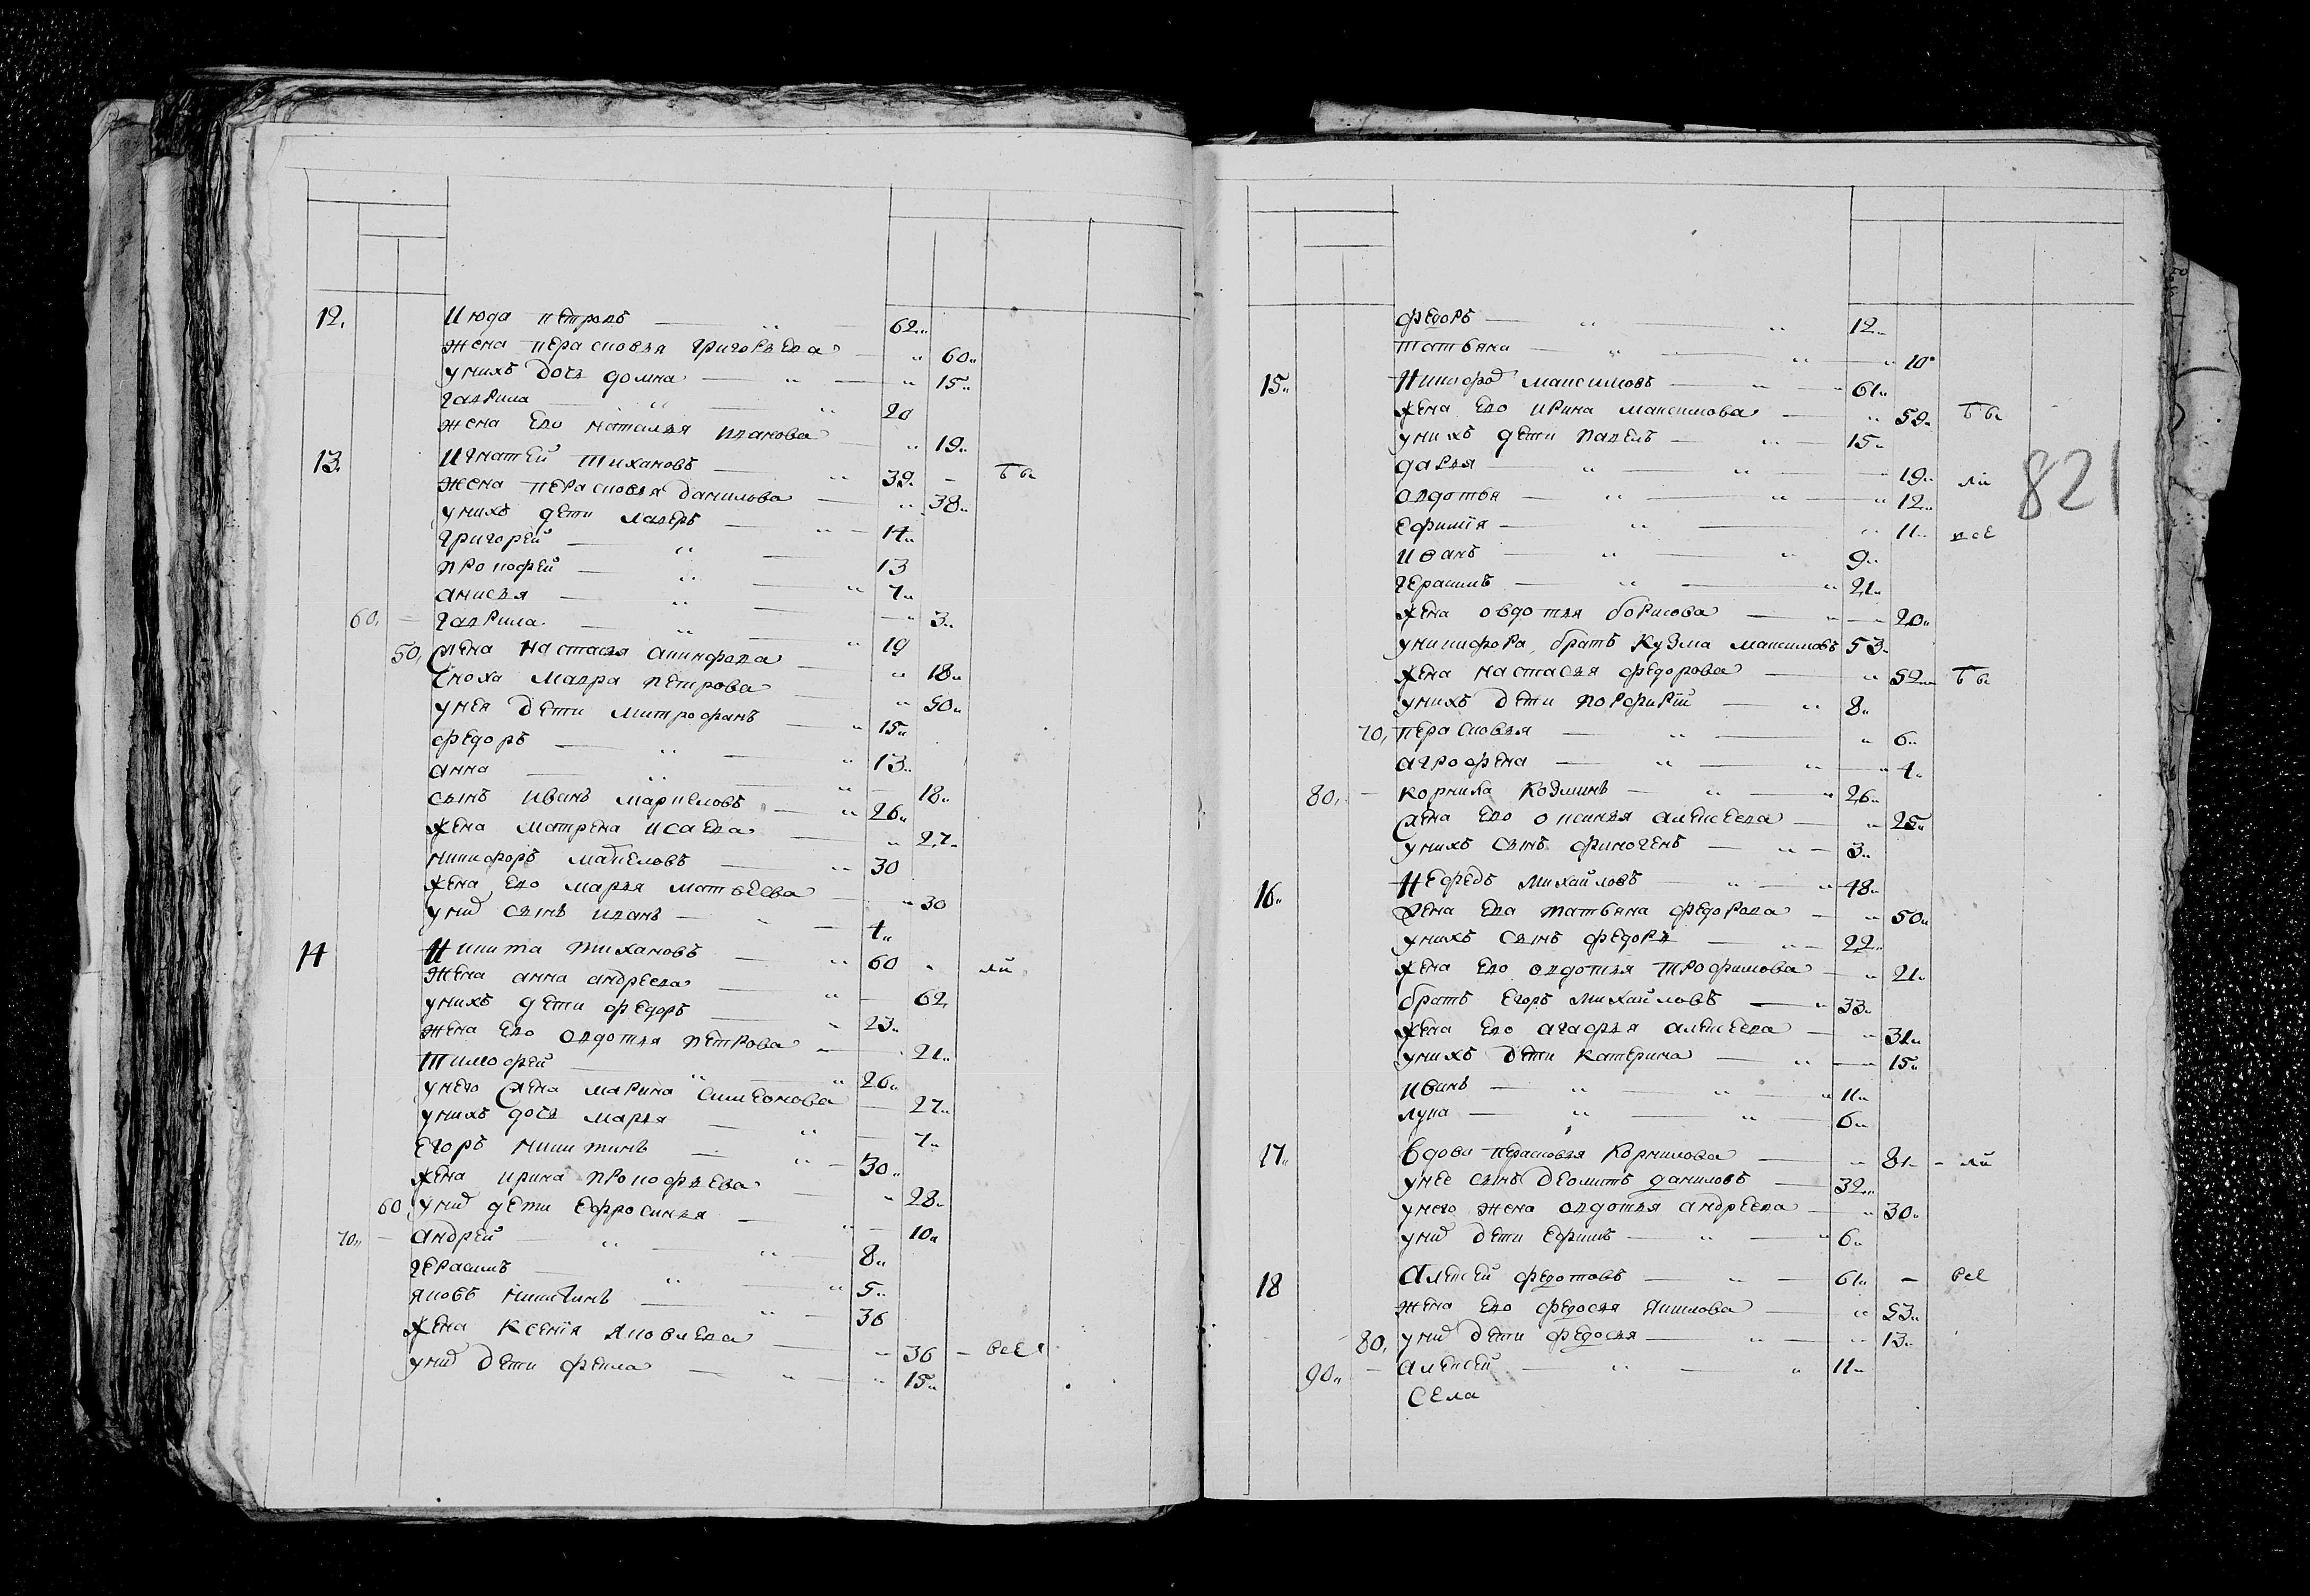 12. Июда петровъ 62
жена перасковья григорьева 60
унихъ дочь домна 15
гаврила 20
жена ево наталья иванова 19
13. Игнатей тихановъ 39
жена перасковья данилова 38
унихъ дети лазеръ 14
григорей 13
прокофей 7
анисья 3
60 гаврила 19
50 жена настасья 18
сноха мавра петрова 50
унея дети митрофанъ 15
федоръ 13
анна 18
сынъ иванъ маркеловъ 26
жена матрена исаева 27
никифоръ 30
жена ево марья матвеева 30
унид сынъ иванъ
14 Никита тихановъ 60
жена анна андреева 62
унихъ дети федоръ 23
жена ево овдотья петрова 21
тимофей 26
унего жена марина симеонова 27
унихъ дочь марья 7
егоръ никитинъ 30
жена ирина прокофьева 28
60 унид дети ефросинья 10
70 андрей 8
герасимъ 5
яковъ никитинъ 36
жена ксенiя яковлева 36 все
унид дети фекла 15
821
федоръ 12
татьяна 10
15 Никифор максимовъ 61
жена ево ирина максимова 59
унихъ дети павелъ 15
дарья 19
овдотья 12
ефимiя 11 все
иванъ 9
герасимъ 21
жена овдотья борисова 20
уникифора братъ кузма максимовъ 53
жена настасья федорова 52
унихъ дети порфирiй 8
70 перасковья 6
агрофена 4
80 корнила козминъ 26
жена ево оксинья алексеева 25
унихъ сынъ финогенъ 3
16 Нефедъ михайловъ 48
жена ева татьяна федорова 50
унихъ сынъ федоръ 22
жена ево овдотья трофимова 21
братъ егоръ михайловъ 33
жена ево агафья алексеева 31
унихъ дети катерина 15
иванъ 11
лука 6
17 вдова перасковья корнилова 81
унее сынъ даниловъ 32
унего жена овдотья андреева 30
унид дети ефимъ 6
18 Алексей федотовъ 61 все
жена ево федосья якимова 53
80 унид дети федосья 13
90 алексей 11
села